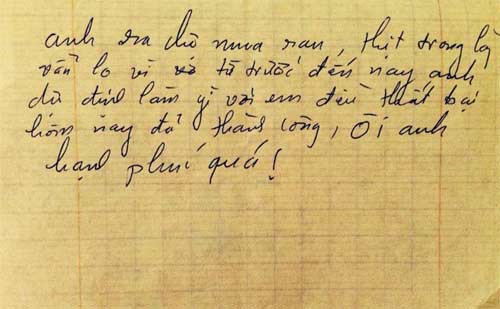 anh ra chợ mua rau, thịt trong lò
vẫn lo vì từ trước đến nay anh
dự định làm gì với em đều thất bại
hôm nay đã thành công, Ôi anh
hạnh phúc quá!